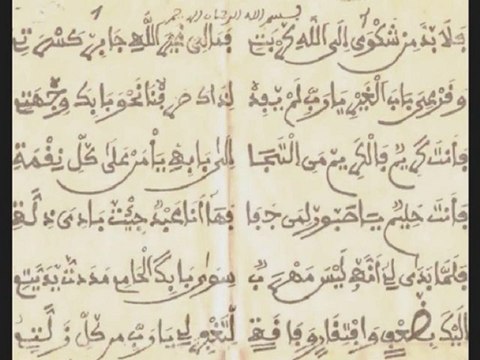 بسم الله الرحمان الرحيم
فلا بد من شكوى الى الله كربت فمالي غير الله جابر كسرتي
وفرعي باب الغير يا رب لم يفد لذاك صرفنا نحو بابك وجهت
فأنت كريم والكريم من التجا الى بابه يأمن على كل نقمة
فأنت حليم يا صبور لمن جفا فها أنا عبد جئت بادي ذلة
فلما بدى لي انه ليس مهرب سوى بابك الحامي مددت يديتي
اليك بضعفي وافتقار وفاقتي لتغفر لي يا رب من كل زلتي